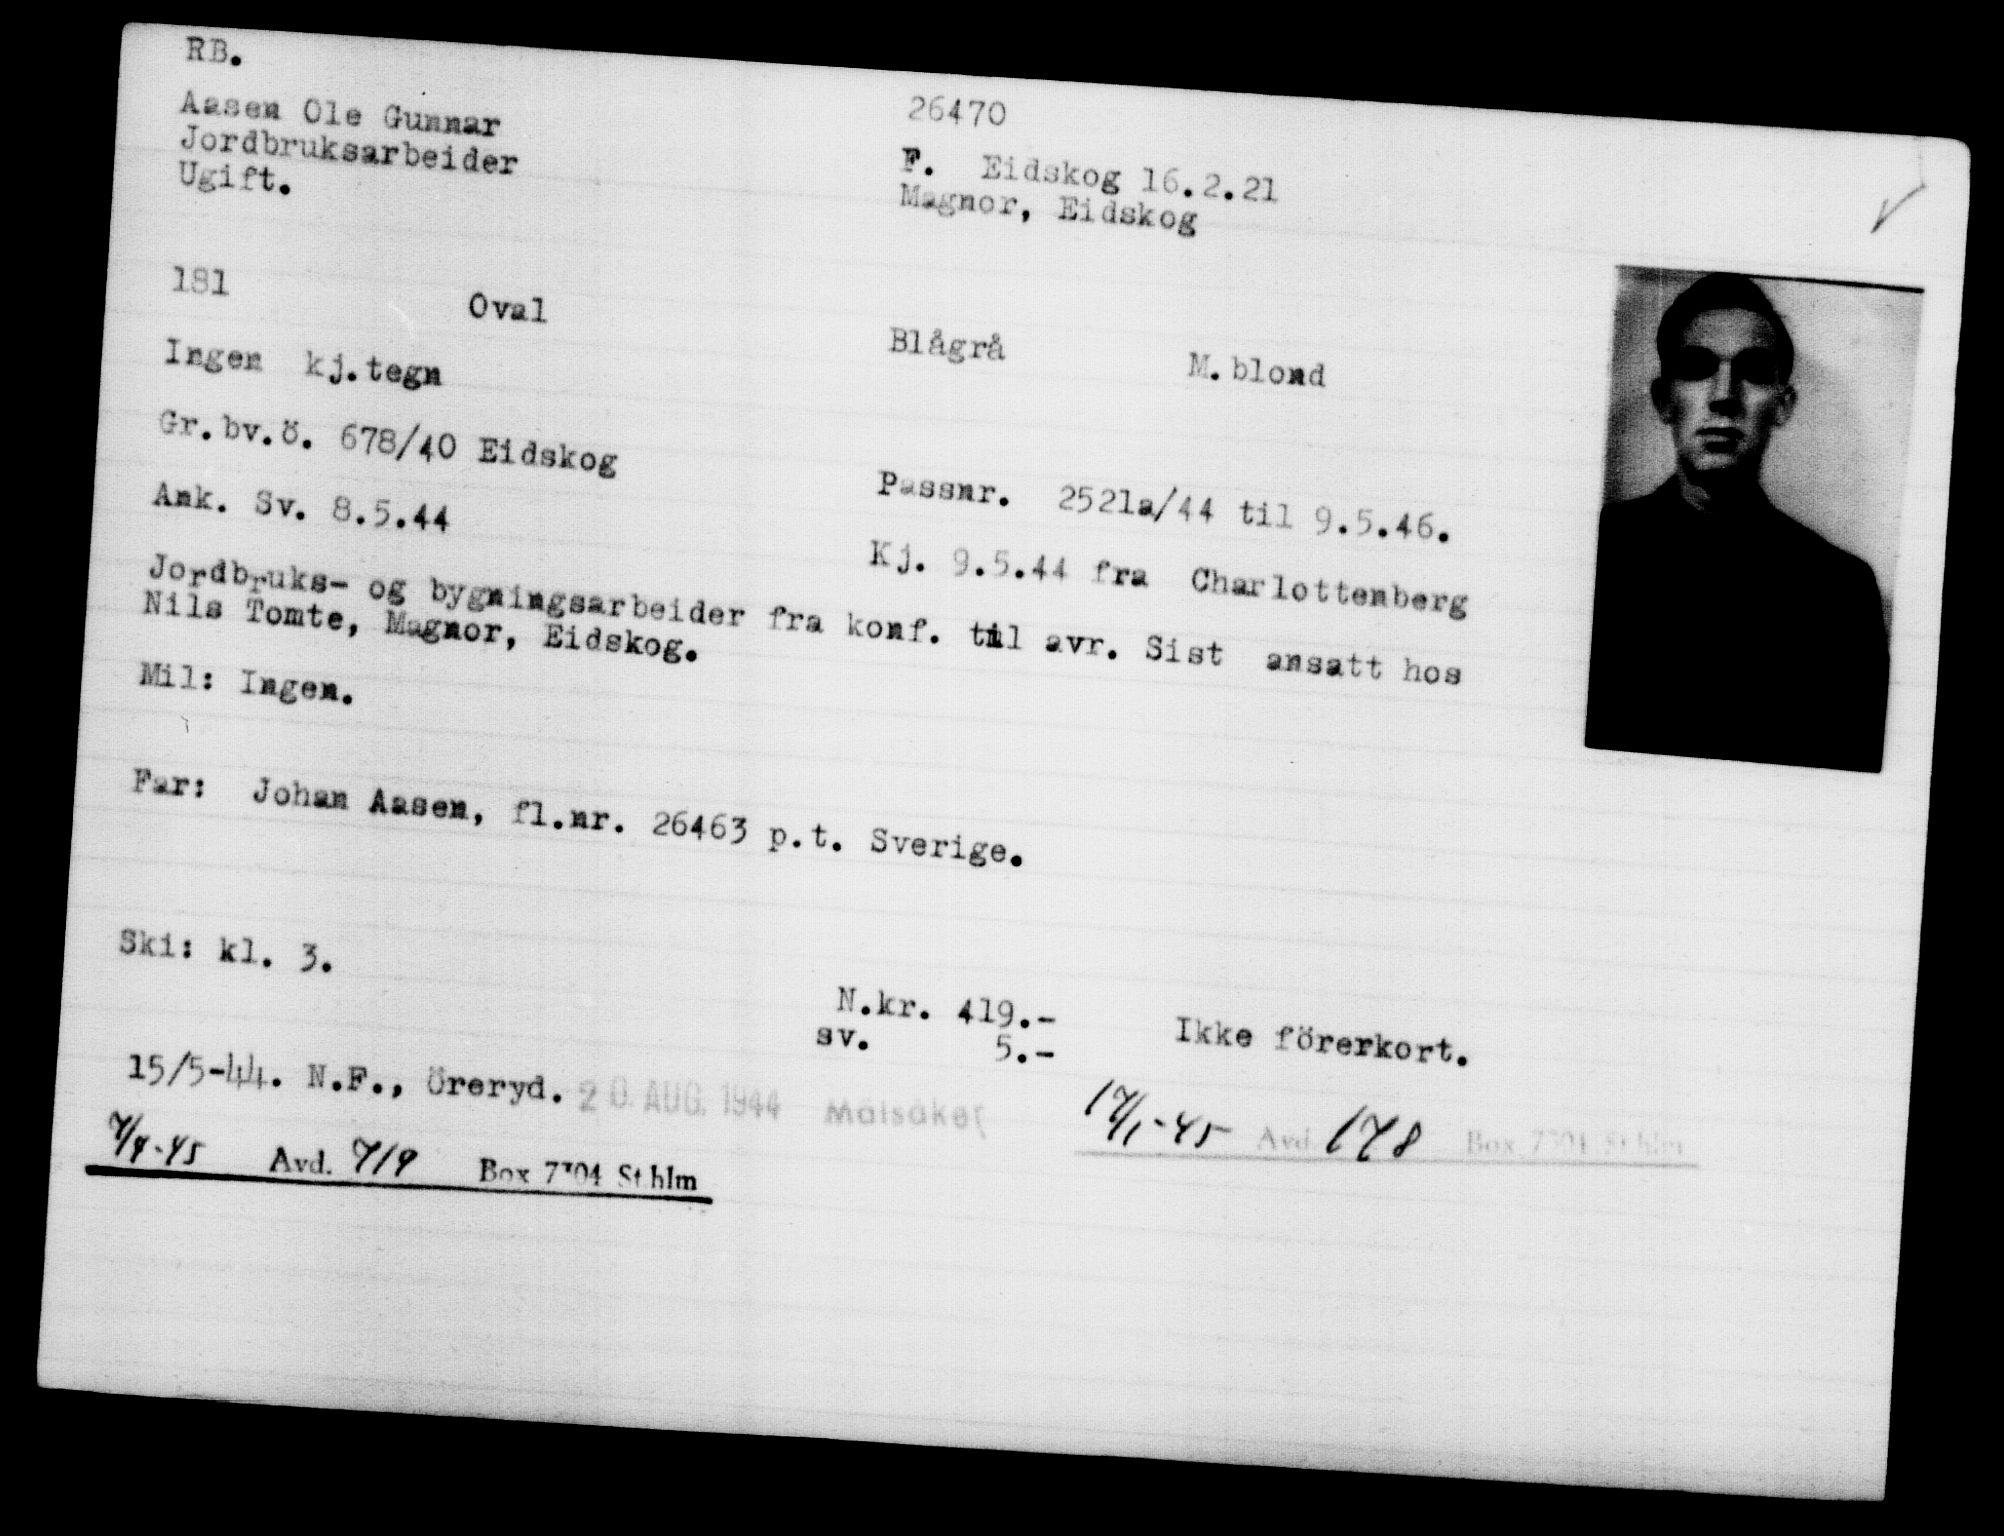 RB.
Aasen Ole Gunnar
Jordbruksarbeider
Ugift.
26470
F. Eidskog 16.2.21
Magnor, Eidskog
181 Oval Blågrå M.blond
Ingen kj.tegn
Gr.bv.ö. 678/40 Eidskog Passnr. 2521a/44 til 9.5.46.
Ank. Sv. 8.5.44 Kj. 9.5.44 fra Charlottenberg
Jordbruks- og bygningsarbeider fra konf. til avr. Sist ansatt hos
Nils Tomte, Magnor, Eidskog.
Mil: Ingen.
Far: Johan Aasen, fl.nr. 26463 p.t. Sverige.
Ski: kl. 3.
N.kr. 419.- Ikke förerkort.
sv. 5.-
15/5-44. N.F., Öreryd. 20. AUG. 1944 Målsåker
17/1-45 Avd. 178 Box 7304 St.hlm
7/4-45 Avd. 719 Box 7304 St.hlm